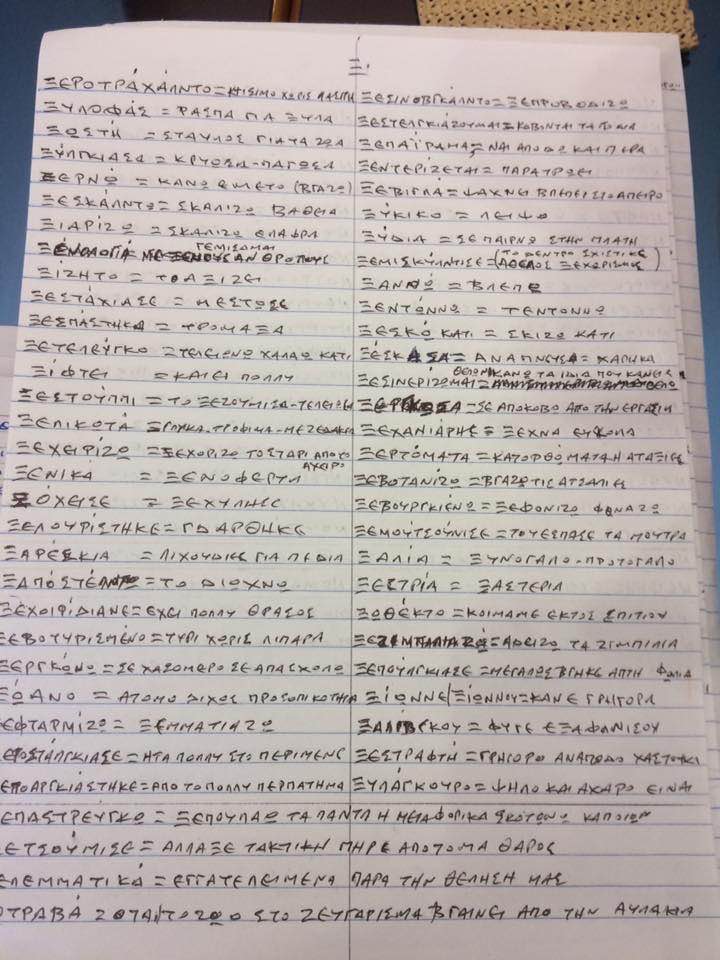 Ξ.
ΞΕΡΟΤΡΆΧΑΛΝΤΟ = ΚΤΙΣΙΜΟ ΧΩΡΙΣ ΛΑΣΠΗ
ΞΥΛΟΦΆΣ = ΡΑΣΠΑ ΓΙΑ ΞΥΛΑ
ΞΩΣΤΉ = ΣΤΑΥΛΟΣ ΓΙΑ ΤΑ ΖΩΑ
ΞΎΠΓΚΙΑΣΑ = ΚΡΥΩΣΑ - ΠΑΓΩΣΑ
ΞΕΡΝΏ = ΚΑΝΩ ΕΜΕΤΟ (ΒΓΑΖΩ)
ΞΕΣΚΆΛΝΤΩ = ΣΚΑΛΙΖΩ ΒΑΘΕΙΑ
ΞΙΑΡΊΖΩ = ΣΚΑΛΙΖΩ ΕΛΑΦΡΑ
ΓΕΜΙΣΟΜΑΙ
ΞΕΝΟΛΟΓΙΆ ΜΕ ΞΕΝΟΥΣ ΑΝΘΡΟΠΟΥΣ
ΞΊΖΗΤΟ = ΤΟ ΑΞΙΖΕΙ
ΞΕΣΤΆΧΙΑΣΕ = ΜΕΣΤΩΣΕ
ΞΕΣΠΆΣΤΗΚΑ = ΤΡΟΜΑΞΑ
ΞΕΤΕΛΕΎΓΚΟ = ΤΕΛΕΙΩΝΩ ΧΑΛΑΩ ΚΑΤΙ
ΞΊΦΤΕΙ = ΚΑΙΕΙ ΠΟΛΛΥ
ΞΕΣΤΟΎΠΠΙ = ΤΟ ΞΕΖΟΥΜΙΣΑ - ΤΕΛΕΙΩΣΕ
ΞΕΛΙΚΟΤΆ = ΓΛΥΚΑ - ΤΡΟΦΙΜΑ - ΜΕΖΕΔΑΚΙΑ
ΞΕΧΕΙΡΊΖΩ = ΞΕΧΟΡΙΖΩ ΤΟ ΣΤΑΡΙ ΑΠΟ ΤΟ
ΑΧΕΙΡΟ
ΞΕΝΙΚΆ = ΞΕΝΟΦΕΡΤΑ
ΞΌΧΕΙΣΕ = ΞΕΧΥΛΗΣΕ
ΞΕΛΟΥΡΊΣΤΗΚΕ = ΓΔΑΡΘΗΚΕ
ΞΑΡΈΣΚΙΑ = ΛΙΧΟΥΔΙΕΣ ΓΙΑ ΠΕΔΙΑ
ΞΑΠΌΣΤΕΛΝΤΩ = ΤΟ ΔΙΩΧΝΩ
ΞΕΧΟΙΦΊΔΙΑΝΕ = ΕΧΕΙ ΠΟΛΛΥ ΘΡΑΣΟΣ
ΞΕΒΟΤΥΡΙΣΜΈΝΟ = ΤΥΡΙ ΧΩΡΙΣ ΛΙΠΑΡΑ
ΞΕΡΓΚΏΝΩ = ΣΕ ΧΑΣΟΜΕΡΟ ΣΕ ΑΠΑΣΧΟΛΩ
ΞΏΑΝΟ = ΑΤΟΜΟ ΔΙΧΟΣ ΠΡΟΣΟΠΙΚΟΤΗΤΑ
ΞΕΦΤΑΡΜΊΖΩ = ΞΕΜΜΑΤΙΑΖΩ
ΕΡΟΣΤΆΛΓΚΙΑΣΕ = ΗΤΑ ΠΟΛΛΥ ΣΤΟ ΠΕΡΙΜΕΝΕ
ΕΠΟΔΡΓΚΙΆΣΤΗΚΕ = ΑΠΟ ΤΟ ΠΟΛΛΥ ΠΕΡΠΑΤΗΜΑ
ΕΠΑΣΤΡΕΎΓΚΩ = ΞΕΠΟΥΛΑΩ ΤΑ ΠΑΝΤΑ Η ΜΕΤΑΦΟΡΙΚΑ ΣΚΟΤΩΝΩ ΚΑΠΟΙΩΝ
ΕΤΣΟΎΜΙΣΕ = ΑΛΛΑΞΕ ΤΑΚΤΙΚΗ ΠΗΡΕ ΑΠΟΤΟΜΑ ΘΑΡΟΣ
ΕΛΕΜΜΑΤΙΚΆ = ΕΓΓΑΤΕΛΕΙΜΕΝΑ ΠΑΡΑ ΤΗΝ ΘΕΛΗΣΗ ΜΑΣ
ΟΤΡΑΒΆ = ΟΤΑΝ ΤΟ ΖΩΟ ΣΤΟ ΖΕΥΓΑΡΙΣΜΑ ΒΓΑΙΝΕΙ ΑΠΟ ΤΗΝ ΑΥΛΑΚΙΑ
ΞΕΣΙΝΟΒΓΚΆΛΝΤΟ = ΞΕΠΡΟΒΟΔΙΖΩ
ΞΕΣΤΕΛΓΚΙΆΖΟΥΜΑΙ = ΚΟΒΟΝΤΑΙ ΤΑ ΠΟΔΙΑ
ΞΕΠΑΪΓΡΑΜΑ = ΝΑΙ ΑΠΟ ΔΩ ΚΑΙ ΠΕΡΑ
ΞΕΝΤΕΡΊΖΕΤΑΙ = ΠΑΡΑΤΡΩΕΙ
ΞΕΒΙΓΛΆ = ΨΑΧΝΕΙ ΒΛΕΠΕΙ ΣΤΟ ΑΠΕΙΡΟ
ΞΎΚΙΚΟ = ΛΕΙΨΟ
ΞΎΔΙΑ = ΣΕ ΠΑΙΡΝΩ ΣΤΗΝ ΠΛΑΤΗ
ΞΕΜΙΣΚΎΛΝΤΙΣΕ = (ΤΟ ΔΕΝΤΡΟ ΣΧΙΣΤΙΚΕ
ΑΘΕΛΟΣ ΞΕΧΩΡΙΣΜΟΣ)
ΞΑΝΏ = ΒΛΕΠΩ
ΞΕΝΤΌΝΝΩ = ΤΕΝΤΟΝΝΩ
ΞΕΣΚΏ ΚΑΤΙ = ΣΚΙΖΩ ΚΑΤΙ
ΞΈΣΚΑΣΑ = ΑΝΑΠΝΕΥΣΑ = ΧΑΡΗΚΑ
ΘΕΛΩ ΝΑ ΚΑΝΩ ΤΑ ΙΔΙΑ ΠΟΥ ΚΑΝΕΙΣ
ΞΕΣΙΝΕΡΊΖΩΜΑΙ =
- ΣΕ ΑΠΟΚΟΒΩ ΑΠΟ ΤΗΝ ΕΡΓΑΣΙΑ
ΞΕΧΑΝΙΆΡΗΣ = ΞΕΧΝΑ ΕΥΚΟΛΑ
ΞΕΡΤΌΜΑΤΑ = ΚΑΤΟΡΘΟΜΑΤΑ Η ΑΤΑΞΙΕΣ
ΞΕΒΟΤΑΝΊΖΩ = ΒΓΑΖΩ ΤΙΣ ΑΤΣΑΛΙΕΣ
ΞΕΒΟΥΡΓΚΙΈΝΩ = ΞΕΦΟΝΙΖΩ ΦΩΝΑΖΩ
ΞΕΜΟΥΤΣΟΎΝΙΣΕ = ΤΟΥ ΕΣΠΑΣΕ ΤΑ ΜΟΥΤΡΑ
ΞΑΛΊΑ = ΞΥΝΟΓΑΛΟ - ΠΡΟΤΟΓΑΛΟ
ΞΕΣΤΡΊΑ = ΞΑΣΤΕΡΙΑ
ΞΩΘΈΚΤΟ = ΚΟΙΜΑΜΕ ΕΚΤΟΣ ΣΠΙΤΙΟΥ
ΞΕΖΙΜΠΑΛΙΆΖΩ = ΑΔΕΙΖΩ ΤΑ ΖΙΜΠΙΛΙΑ
ΞΕΠΟΎΛΓΚΙΑΣΕ = ΜΕΓΑΛΩΣ ΒΓΗΚΕ ΑΠΤΗ ΦΩΛΙΑ
ΞΊΩΝΝΕ / ΞΙΩΝΝΟΥ = ΚΑΝΕ ΓΡΗΓΟΡΑ
ΞΑΛΊΒΓΚΟΥ = ΦΥΓΕ ΕΞΑΦΑΝΙΣΟΥ
ΞΕΣΤΡΑΦΤΉ = ΓΡΗΓΟΡΟ ΑΝΑΠΟΔΟ ΧΑΣΤΟΥΚΙ
ΞΥΛΆΓΚΟΥΡΟ = ΨΗΛΟ ΚΑΙ ΑΧΑΡΟ ΕΙΝΑΙ